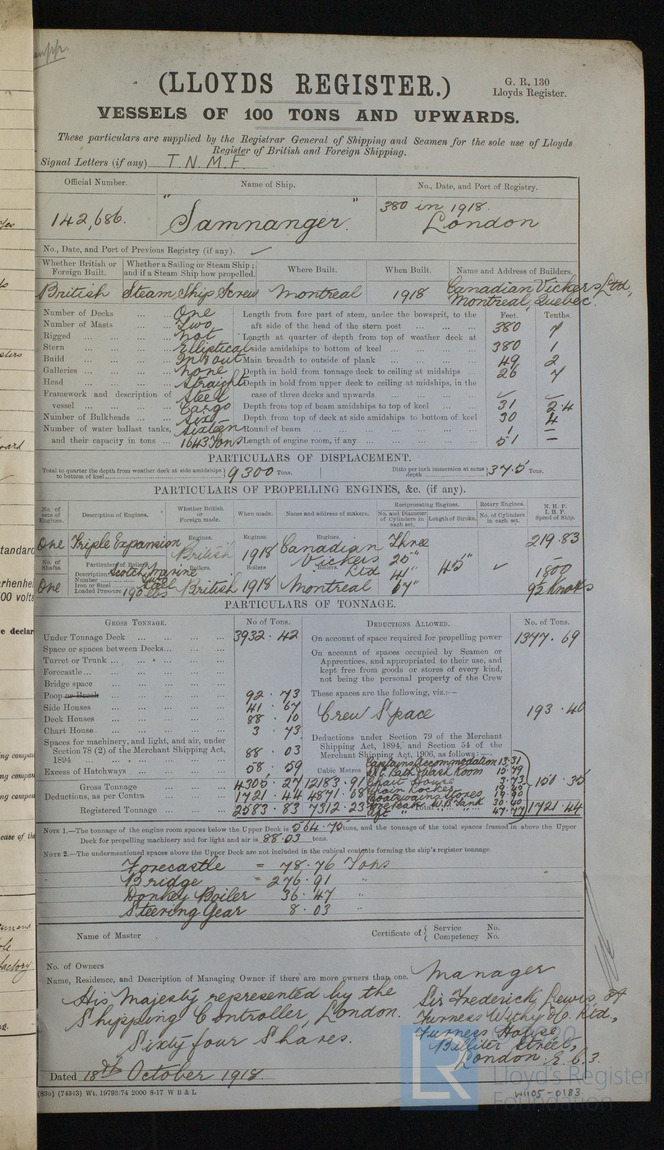 (LLOYDS REGISTER.)
G. R. 130
Lloyds Register.
VESSELS OF 100 TONS AND UPWARDS.
These particulars are supplied by the Registrar General of Shipping and Seamen for the sole use of Lloyds
Register of British and Foreign Shipping.
Signal Letters (if any) T.N.M.F.
Official Number. Name of Ship. No., Date, and Port of Registry.
142,686. "Samnanger." 380 in 1918. London
No., Date, and Port of Previous Registry (if any).
Whether British or Foreign Built. Whether a Sailing or Steam Ship; and if a Steam Ship how propelled. Where Built. When Built. Name and Address of Builders.
British Steam Ship Screw Montreal 1918 Canadian Vickers Ltd, Montreal, Quebec.
Feet. Tenths.
Number of Decks One Length from fore part of stem, under the bowsprit, to the
Number of Masts Two aft side of the head of the stern post 380 7
Rigged not Length at quarter of depth from top of weather deck at
Stern Elliptical side amidships to bottom of keel 380 1
Build In & out Main breadth to outside of plank 49 2
Galleries none Depth in hold from tonnage deck to ceiling at midships 26 7
Head Straight Depth in hold from upper deck to ceiling at midships, in the
Framework and description of Steel case of three decks and upwards
vessel Cargo Depth from top of beam amidships to top of keel 31 24
Number of Bulkheads Six Depth from top of deck at side amidships to bottom of keel 30 4
Number of water ballast tanks, Sixteen Round of beam 1 —
and their capacity in tons 1643 Tons Length of engine room, if any 51 —
PARTICULARS OF DISPLACEMENT.
Total to quarter the depth from weather deck at side amidships to bottom of keel 9300 Tons. Ditto per inch immersion at same depth 37.5 Tons.
PARTICULARS OF PROPELLING ENGINES, &c. (if any).
No. of sets of Engines. Description of Engines. Whether British or Foreign made. When made. Name and address of makers. Reciprocating Engines. No. and Diameter of Cylinders in each set. Length of Stroke. Rotary Engines. No. of Cylinders in each set. N.H.P. I.H.P. Speed of Ship.
Engines. Engines. Engines.
One Triple Expansion British 1918 Canadian Three 219.83
No. of Shafts. Particulars of Boilers. Boilers. Boilers Vickers 45"
Description Scotch Marine Ltd 1800
Number
Iron or Steel Steel
One Loaded Pressure 190 lbs British 1918 Montreal 67" 9½ knots
PARTICULARS OF TONNAGE.
GROSS TONNAGE. No. of Tons. DEDUCTIONS ALLOWED. No. of Tons.
Under Tonnage Deck 3932.42 On account of space required for propelling power 1377.69
Space or spaces between Decks On account of spaces occupied by Seamen or
Turret or Trunk Apprentices, and appropriated to their use, and
Forecastle kept free from goods or stores of every kind,
Bridge space not being the personal property of the Crew
Poop or Break 92.73 These spaces are the following, viz.:—
Side Houses 41.67
Deck Houses 88.10 Crew Space 193.40
Chart House 3.73
Spaces for machinery, and light, and air, under Section 78 (2) of the Merchant Shipping Act, 1894 88.03 Deductions under Section 79 of the Merchant Shipping Act, 1894, and Section 54 of the Merchant Shipping Act, 1906, as follows:—
Excess of Hatchways 58.59 Cubic Metres
Captains Accommodation 13.31
Chart House 3.73
Boatswains Stores
Gross Tonnage 4305.27 12183.91
Deductions, as per Contra 1721.44 4871.68
Registered Tonnage 2583.83 7312.23 Total 1721.44
NOTE 1.—The tonnage of the engine room spaces below the Upper Deck is 564.70 tons, and the tonnage of the total spaces framed in above the Upper
Deck for propelling machinery and for light and air is 88.03 tons.
NOTE 2.—The undermentioned spaces above the Upper Deck are not included in the cubical contents forming the ship's register tonnage
Forecastle = 78.76 Tons
Bridge = 276.91 "
Donkey Boiler 36.47 "
Steering Gear 8.03 "
Name of Master Certificate of { Service No. Competency No.
No. of Owners
Name, Residence, and Description of Managing Owner if there are more owners than one. Manager
His Majesty represented by the Sir Frederick Lewis, of
Shipping Controller, London. Furness Withy & Co. Ltd,
Sixty four Shares. Furness House
Billiter Street,
London E.C.3.
Dated 18th October 1918.
(83o) (74343) Wt. 19793/74 2000 8-17 W B & L
LR
Lloyd's Register
Foundation
W1105-0183